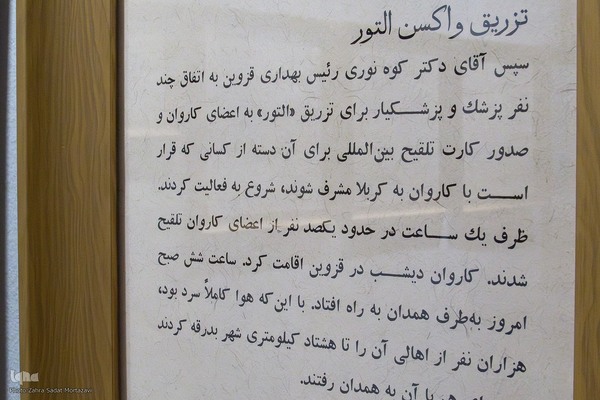 تزریق واکسن التور
سپس آقای دکتر کوه نوری رئیس بهداری قزوین به اتفاق چند
نفر پزشك و پزشـــکیار برای تزریق «التور» به اعضای کاروان و
صدور کارت تلقیح بین‌المللی برای آن دسته از کسانی که قرار
اســـت با کاروان به کربلا مشرف شوند، شروع به فعالیت کردند.
ظرف یك ســـاعت در حدود یکصد نفر از اعضای کاروان تلقیح
شدند. کاروان دیشـــب در قزوین اقامت کرد. ساعت شش صبح
امروز به‌طرف همدان به راه افتاد. با این‌که هوا کاملاً سرد بود،
هزاران نفر از اهالی آن را تا هشتاد کیلومتری شهر بدرقه کردند
با آن به همدان رفتند.
iqna
Photo: Zahra Sadat Mortazavi